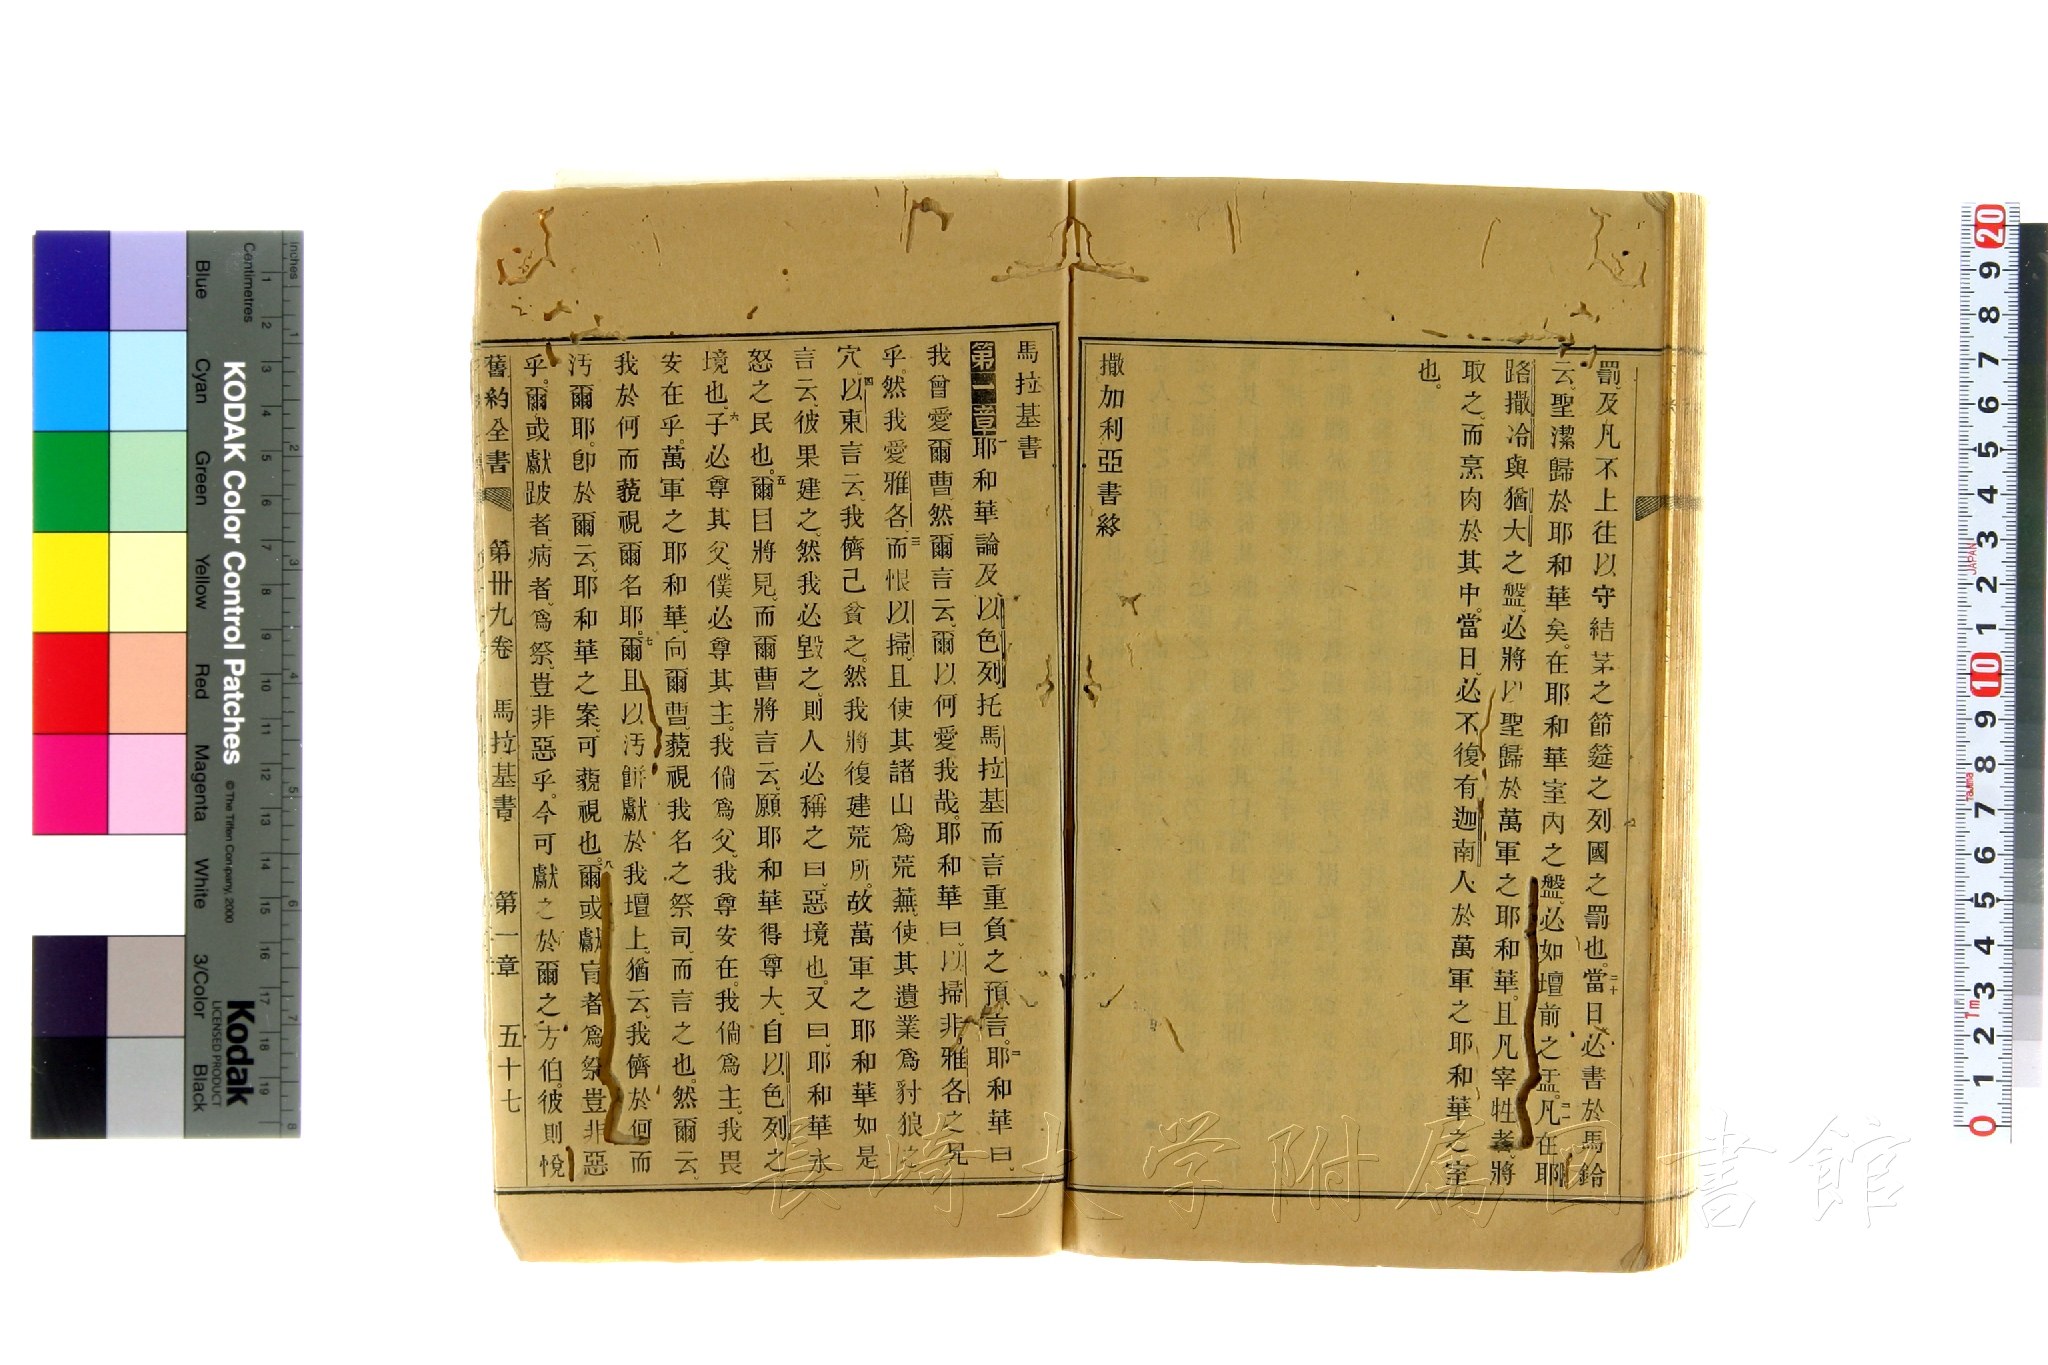 罰、及凡不上往以守結茅之節筵之列國之罰也。二十當日必書於馬鈴
云、聖潔歸於耶和華矣。在耶和華室內之盤、必如壇前之盂。凡在耶
路撒冷與猶大之盤、必將以聖歸於萬軍之耶和華。且凡宰牲者、將
取之、而烹肉於其中。當日、必不復有迦南人於萬軍之耶和華之室
也。
撒加利亞書終
馬拉基書
第一章 一耶和華論及以色列托馬拉基而言重負之預言。二耶和華曰、
我曾愛爾曹、然爾言云、爾以何愛我哉。耶和華曰、以掃非雅各之兄
乎。然我愛雅各、三而恨以掃、且使其諸山爲荒蕪、使其遺業爲豺狼之
穴。四以東言云、我儕已貧之、然我將復建荒所。故萬軍之耶和華如是
言云、彼果建之、然我必毀之、則人必稱之曰、惡境也。又曰、耶和華永
怒之民也。五爾目將見、而爾曹將言云、願耶和華得尊大、自以色列之
境也。六子必尊其父、僕必尊其主。我倘爲父、我尊安在。我倘爲主、我畏
安在乎。萬軍之耶和華、向爾曹、藐視我名之祭司而言之也。然爾云、
我於何而藐視爾名耶。七爾且以汚餅獻於我壇上。猶云、我儕於何而
汚爾耶。卽於爾云、耶和華之案、可藐視也。八爾或獻盲者爲祭、豈非惡
乎。爾或獻跛者、病者、爲祭、豈非惡乎。今可獻之於爾之方伯。彼則悅
舊約全書 第卅九卷 馬拉基書 第一章 五十七
KODAK Color Control Patches
© The Tiffen Company, 2000
Kodak
LICENSED PRODUCT
Inches
Centimetres
Blue
Cyan
Green
Yellow
Red
Magenta
White
3/Color
Black
1 2 3 4 5 6 7 8 9 10 11 12 13 14 15 16 17 18 19
1 2 3 4 5 6 7 8
20 9 8 7 6 5 4 3 2 1 10 9 8 7 6 5 4 3 2 1 0
JAPAN
Tajima
1m
長崎大学附属図書館